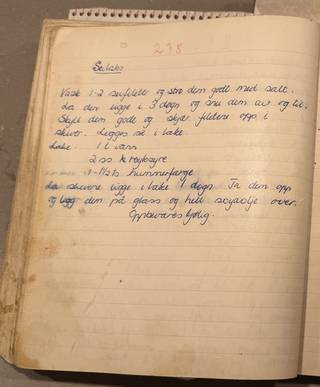 238
Seilaks
Vask 1-2 seifileter og strø dem godt med salt.
La den ligge i 3 døgn og snu dem av og til.
Skyll dem godt og skjær filetene opp i
skiver. Legges så i lake.
Lake: 1 l vann
2 ss røykesyre
1-1½ ts hummerfarge
La skivene ligge i lake 1 døgn. Ta dem opp
og legg dem på glass og hell soyaolje over.
Oppbevares kjølig.